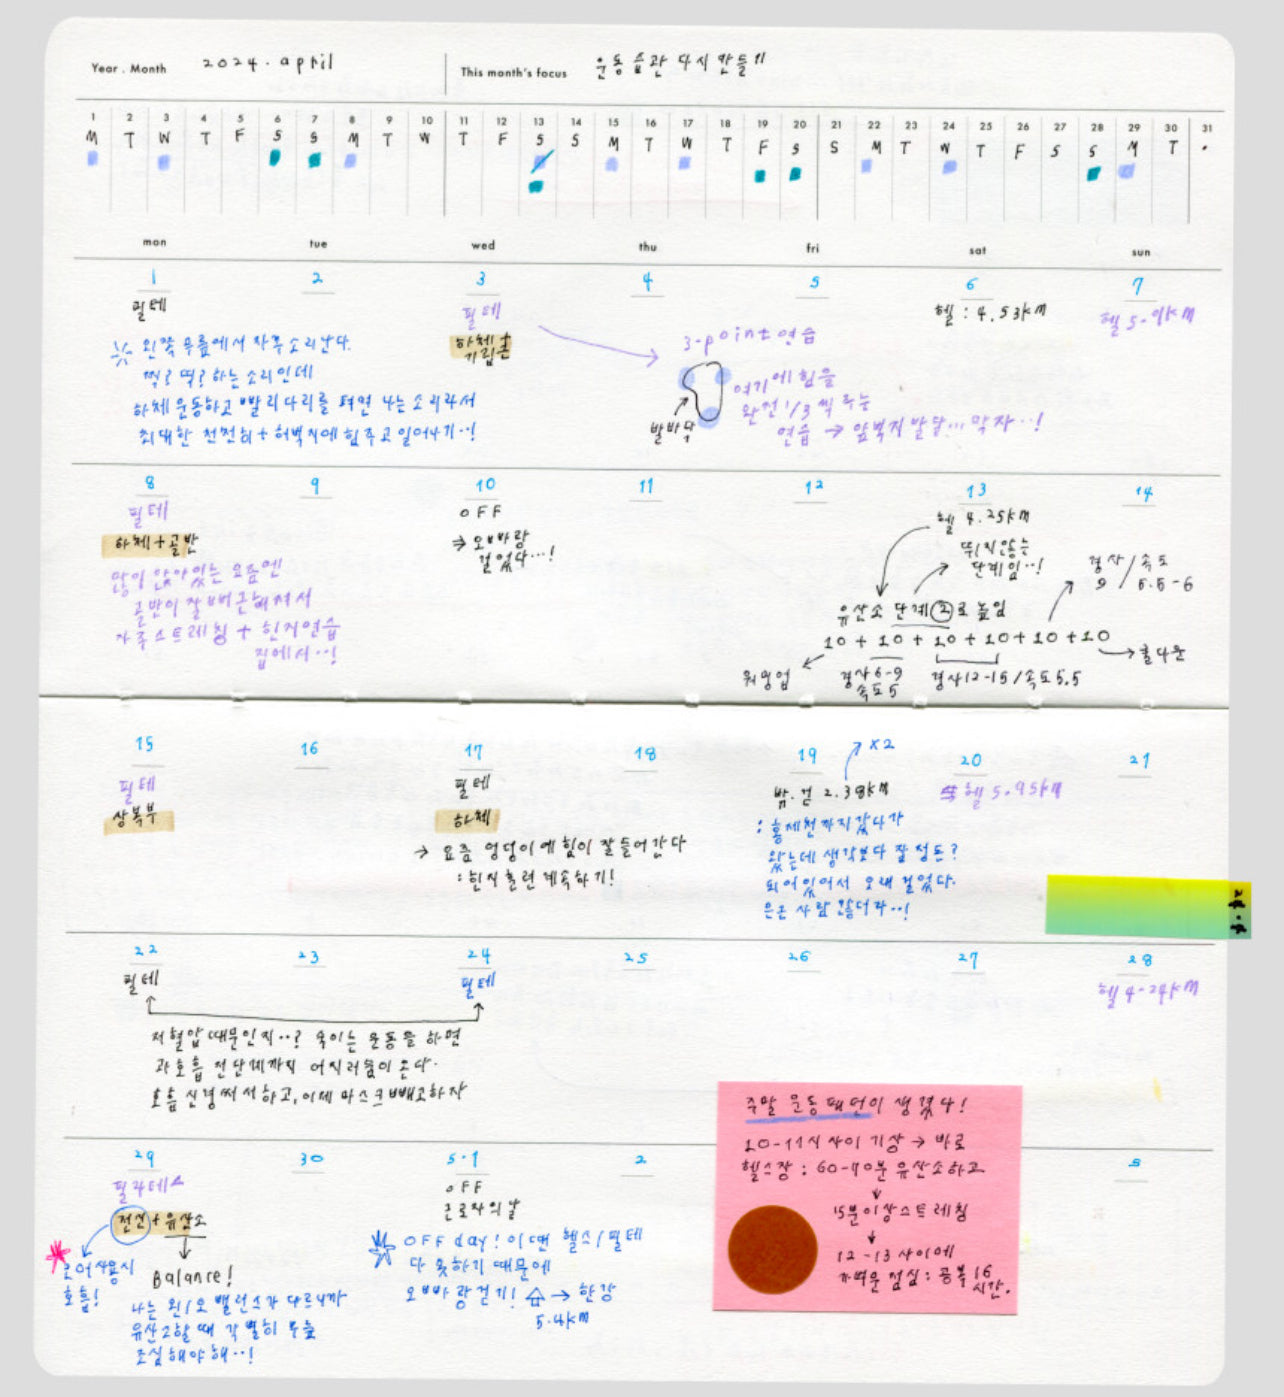 Year . Month 2024. april
This month's focus 운동습관 다시 만들기
1 2 3 4 5 6 7 8 9 10 11 12 13 14 15 16 17 18 19 20 21 22 23 24 25 26 27 28 29 30 31
M T W T F S S M T W T F S S M T W T F S S M T W T F S S M T .
mon tue wed thu fri sat sun
1
필테
왼쪽 무릎에서 자주 소리난다.
찍? 떡? 하는 소리인데
하체운동하고 빨리 다리를 펴면 나는 소리라서
최대한 천천히 + 허벅지에 힘주고 일어나기..!
2
3
필테
하체 +
기립근
4
3-point 연습
여기에 힘을
완전 1/3씩 두는
연습 → 앞벅지 발달... 막자..!
발바닥
5
6
헬 : 4.53km
7
헬 5.9km
8
필테
하체+골반
많이 앉아있는 요즘엔
골반이 잘 뻐근해져서
자주 스트레칭 + 힌지연습
집에서..!
9
10
OFF
⇒ 오빠랑
걸었다...!
11
12
13
헬 4.25km
뛰지않는
단계임..!
경사 / 속도
9 / 5.5-6
유산소 단계 ②로 높임
10 + 10 + 10 + 10 + 10 + 10
워밍업
경사 6-9
속도 5
경사 12-15 / 속도 5.5
쿨다운
14
15
필테
상복부
16
17
필테
하체
→ 요즘 엉덩이에 힘이 잘 들어간다
: 힌지 훈련 계속하기!
18
19
x2
밤.걷 2.38km
: 홍제천까지 갔다가
왔는데 생각보다 잘 정돈?
되어있어서 오래 걸었다.
은근 사람 많더라..!
20
헬 5.95km
21
22
필테
23
24
필테
저혈압 때문인지..? 숙이는 운동을 하면
과호흡 전단계까지 어지러움이 온다.
호흡 신경써서하고, 이제 마스크 빼고하자
25
26
27
28
헬 4.24km
29
필라테스
전신 + 유산소
코어사용시
호흡!
Balance!
나는 왼/오 밸런스가 다르니까
유산소할 때 각별히 무릎
조심해야해..!
30
5.1
OFF
근로자의날
OFF day! 이땐 헬스/필테
다 못하기 때문에
오빠랑 걷기! → 한강
5.4km
2
주말 운동 패턴이 생겼다!
10-11시 사이 기상 → 바로
헬스장 : 60-70분 유산소하고
15분이상 스트레칭
12-13 사이에
가벼운 점심 : 공복 16
시간.
5